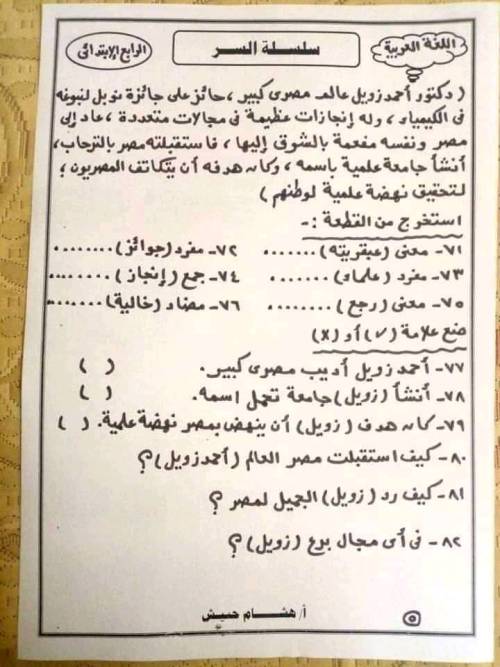 اللغة العربية
سلسلة السر
الرابع الإبتدائى
( دكتور أحمد زويل عالم مصرى كبير، حائز على جائزة نوبل لنبوغه
فى الكيمياء، وله إنجازات عظيمة فى مجالات متعددة، عاد إلى
مصر ونفسه مفعمة بالشوق إليها، فاستقبلته مصر بالترحاب،
أنشأ جامعة علمية باسمه، وكان هدفه أن يتكاتف المصريون؛
لتحقيق نهضة علمية لوطنهم )
استخرج من القطعة :-
٧١- معنى (عبقريته) ....... ٧٢- مفرد (جوائز) ........
٧٣- مفرد (علماء) ....... ٧٤- جمع (إنجاز) ........
٧٥- معنى (رجع) ........ ٧٦- مضاد (خالية) ........
ضع علامة (✓) أو (x)
٧٧- أحمد زويل أديب مصرى كبير. ( )
٧٨- أنشأ (زويل) جامعة تحمل اسمه. ( )
٧٩- كان هدف (زويل) أن ينهض بمصر نهضة علمية. ( )
٨٠- كيف استقبلت مصر العالم (أحمد زويل)؟
٨١- كيف رد (زويل) الجميل لمصر ؟
٨٢- فى أى مجال برع (زويل)؟
أ/ هشام حبيش
٥